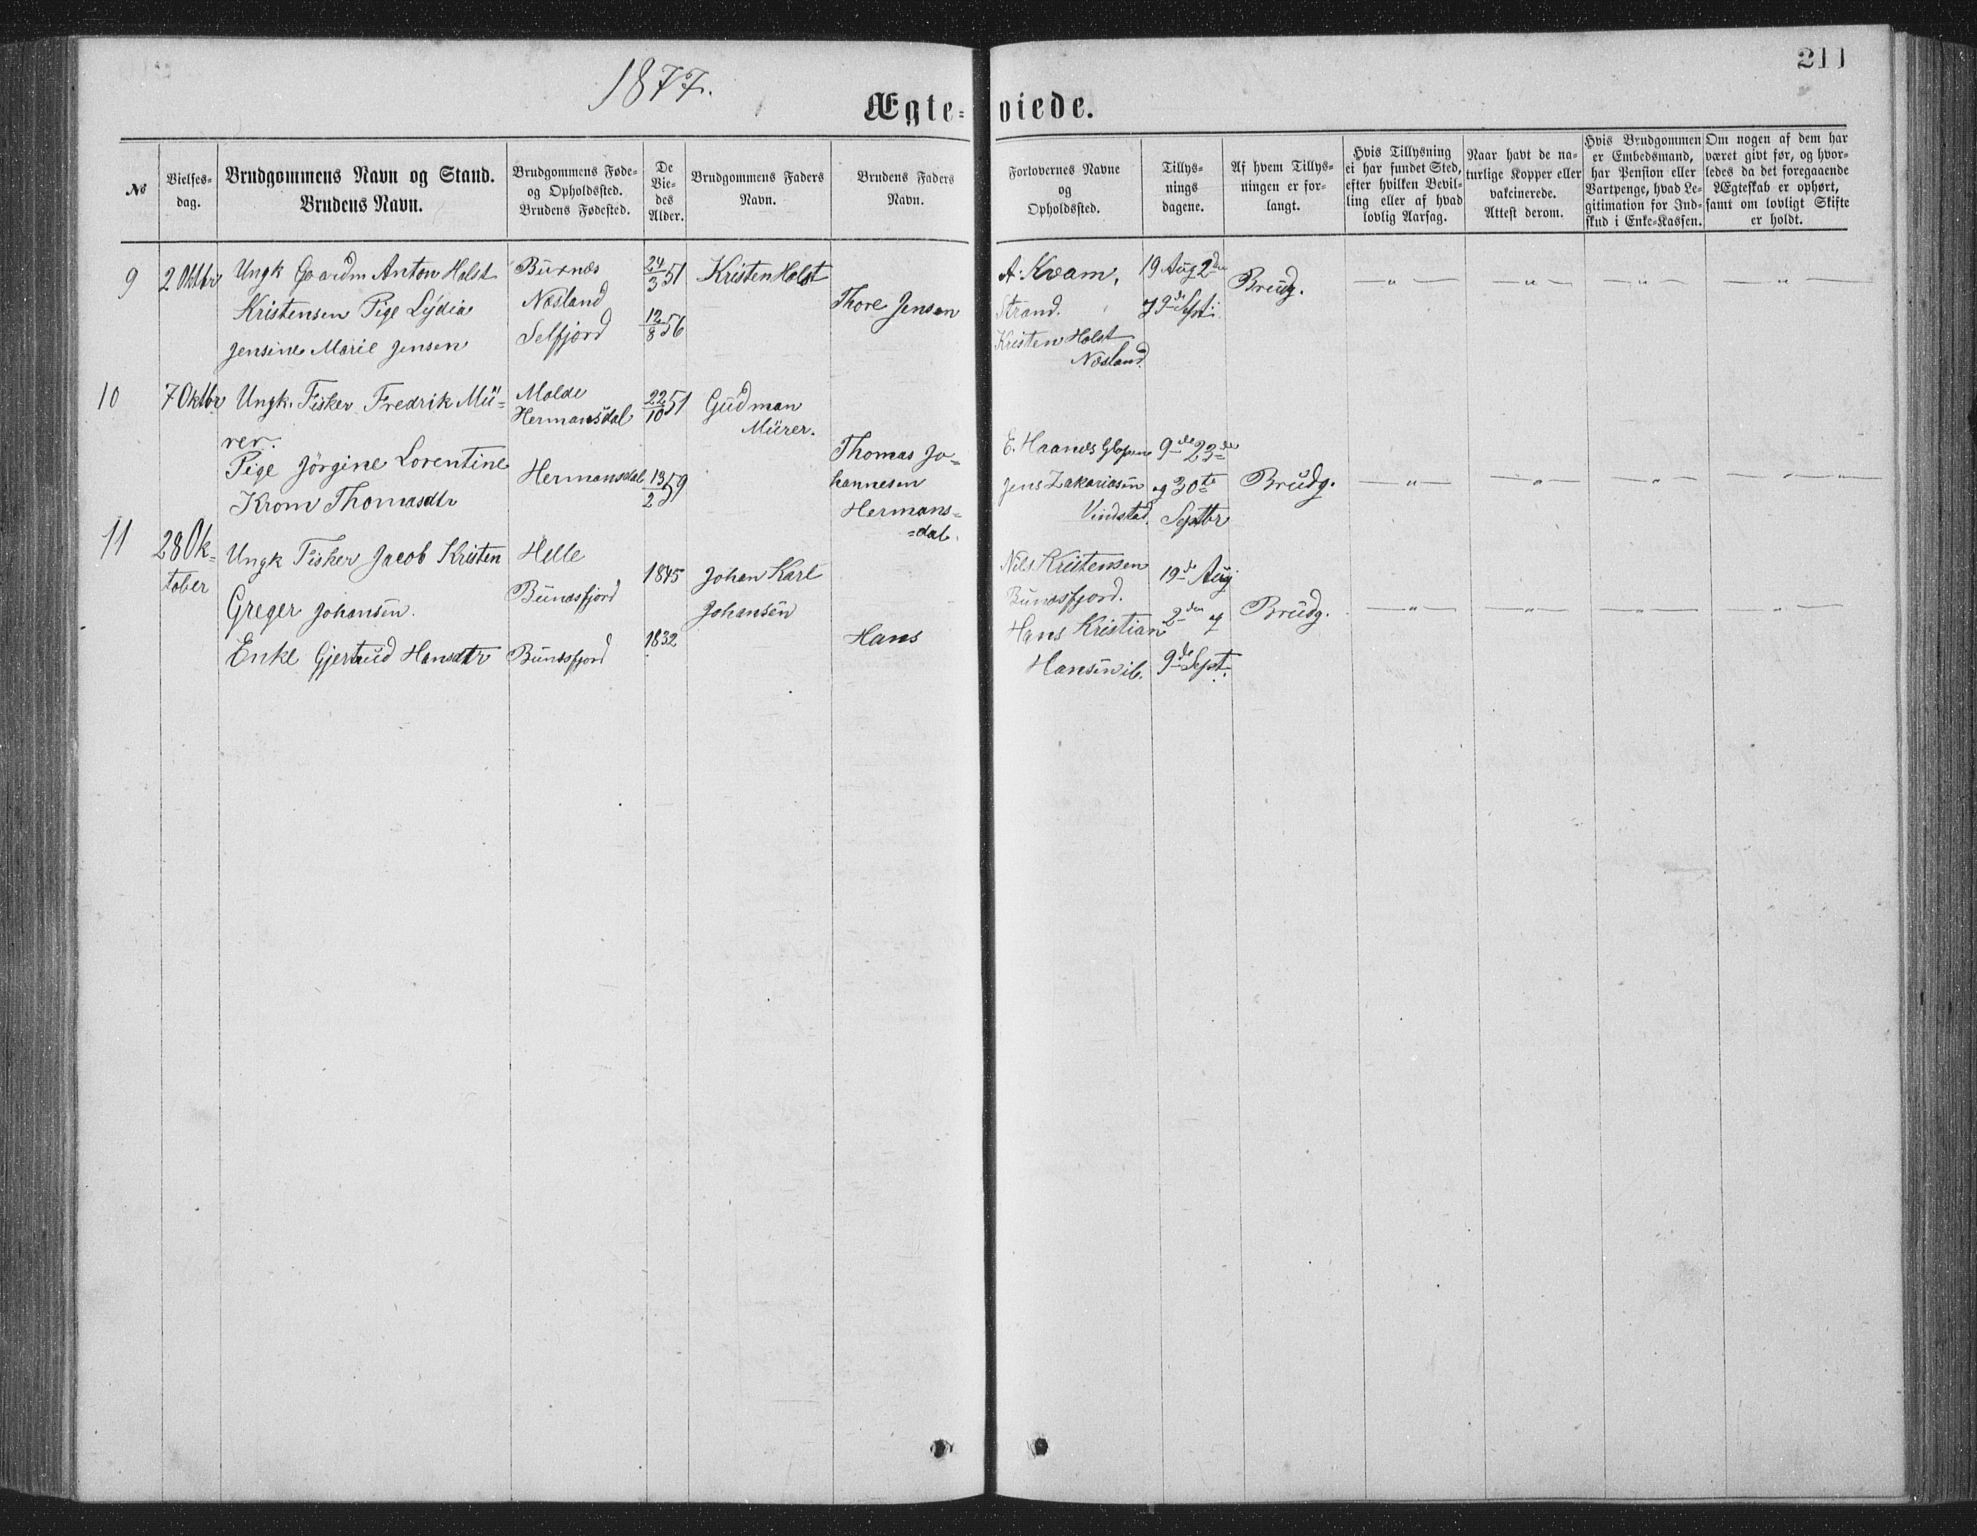 1877.
211
Ægte=viede.
№
Vielses-
dag.
Brudgommens Navn og Stand.
Brudens Navn.
Brudgommens Føde-
og Opholdssted.
Brudens Fødested.
De
Vie-
des
Alder.
Brudgommens Faders
Navn.
Brudens Faders
Navn.
Forlovernes Navne
og
Opholdssted.
Tillys-
nings
dagene.
Af hvem Tillys-
ningen er for-
langt.
Hvis Tillysning
ei har fundet Sted,
efter hvilken Bevil-
ling eller af hvad
lovlig Aarsag.
Naar havt de na-
turlige Kopper eller
vakcinerede.
Attest derom.
Hvis Brudgommen
er Embedsmand,
har Pension eller
Vartpenge, hvad Le-
gitimation for Ind-
skud i Enke-Kassen.
Om nogen af dem har
været givt før, og hvor-
ledes da det foregaaende
Ægteskab er ophørt,
samt om lovligt Skifte
er holdt.
9
2 Oktbr
Ungk Gaardm Anton Holst
Kristensen Pige Lydia
Jensine Marie Jensen
Næsland
Selfjord
24/3 51
12/8 56
Kristen Holst
Thore Jensen
A. Kvam,
Strand.
Kristen Holst
Næsland.
19 Aug 2den
9de Sept:
Brudg.
— " —
— " —
— " —
— " —
10
7 Oktbr
Ungk. Fisker Fredrik Mü-
rer.
Pige Jörgine Lorentine
Krom Thomasdtr
Molde
Hermansdal
Hermansdal
22/10 51
13/2 59
Gudman
Mürer.
Thomas Jo-
hannesen
Hermans-
=dal.
E. Haanes
Jens Zakariasen
Vindstad.
9de 23de
og 30te
Septbr
Brudg.
— " —
— " —
— " —
— " —
11
28 Ok-
tober
Ungk Fisker Jacob Kristen
Greger Johansen.
Enke Gjertrud Hansdtr
Helle
Bunæsfjord
Bunæsfjord
1845
1832
Johan Karl
Johansen
Hans
Nils Kristensen
Bunæsfjord.
Hans Kristian
Hansen ib.
19de Aug
2den og
9de Sept.
Brudg.
— " —
— " —
— " —
— " —